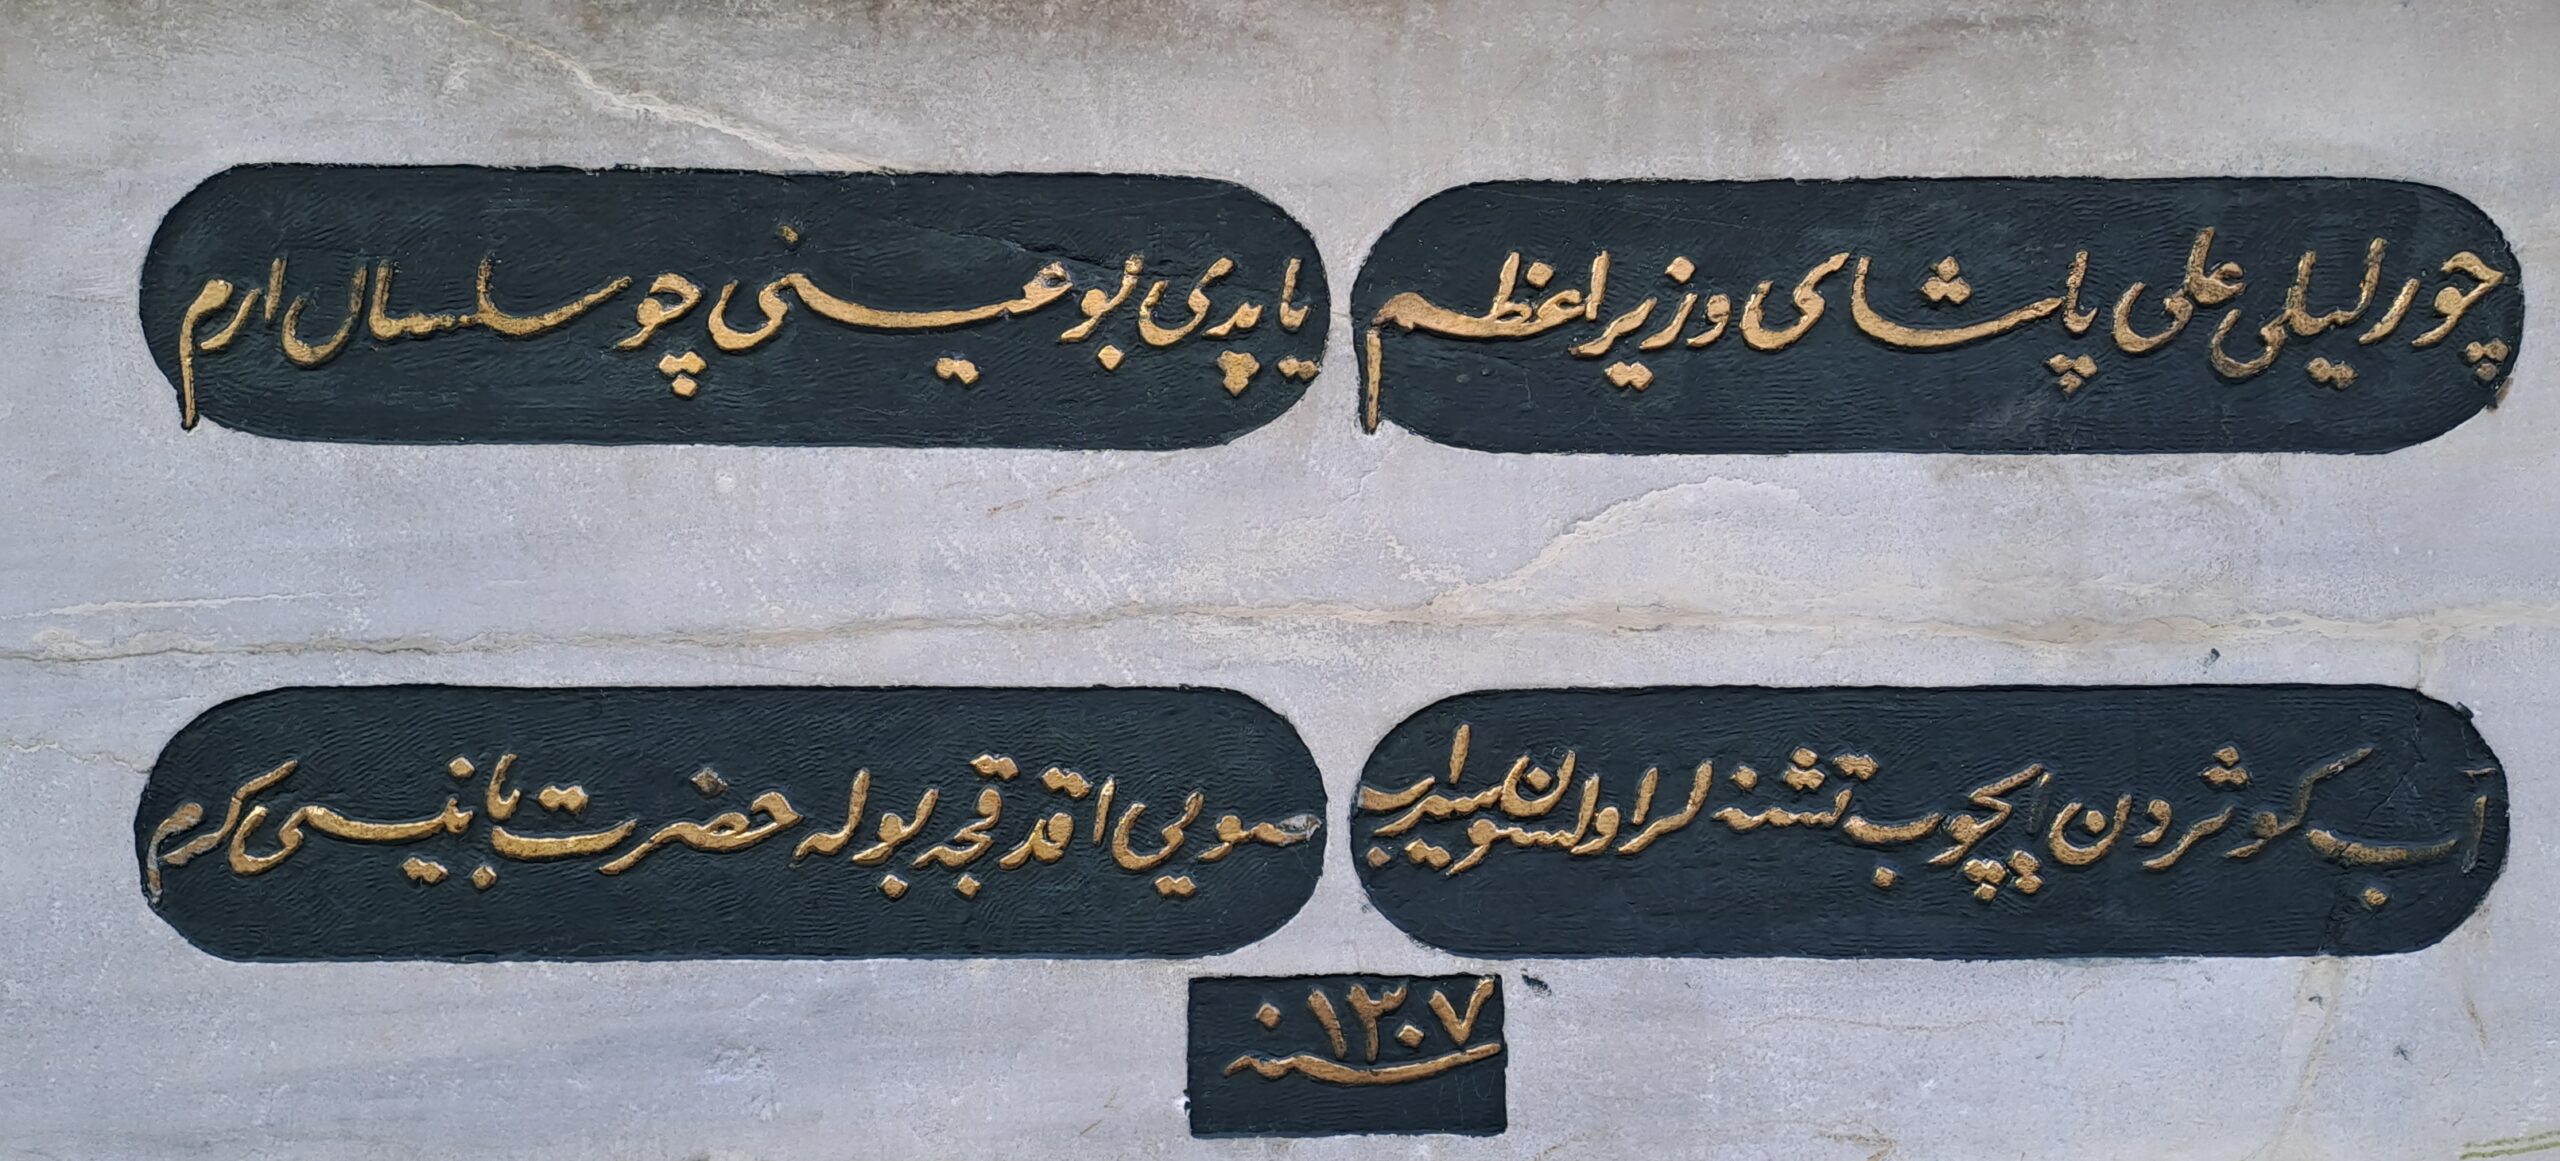 چورلیلی علی پاشای وزیر اعظم
یاپدی بو عینی چو سلسال ارم
آب کوثردن ایچوب تشنه لر اولسون سیراب
سویی اقدقجه بوله حضرت بانیسی کرم
سنه ١٣٠٧